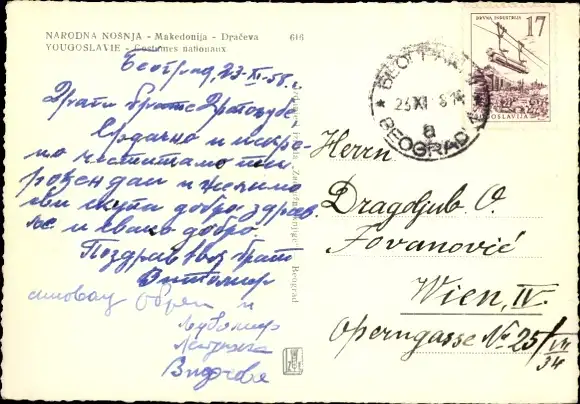 NARODNA NOŠNJA - Makedonija - Dračeva 616
YOUGOSLAVIE - Costumes nationaux
Београд, 23-XI-58.г
Драги брате Драгољубе
Срдачно и искре-
но честитамо ти
рођендан и желимо
ви скупа добро здрав-
ље и свако добро.
Поздрав твој брат
Витомир
синовац Обрен и
Љубомир
Beograd
DRVNA INDUSTRIJA 17
JUGOSLAVIJA
23 XI 58
BEOGRAD
Herrn
Dragoljub. O.
Jovanović
Wien, IV.
Operngasse No. 25/
34